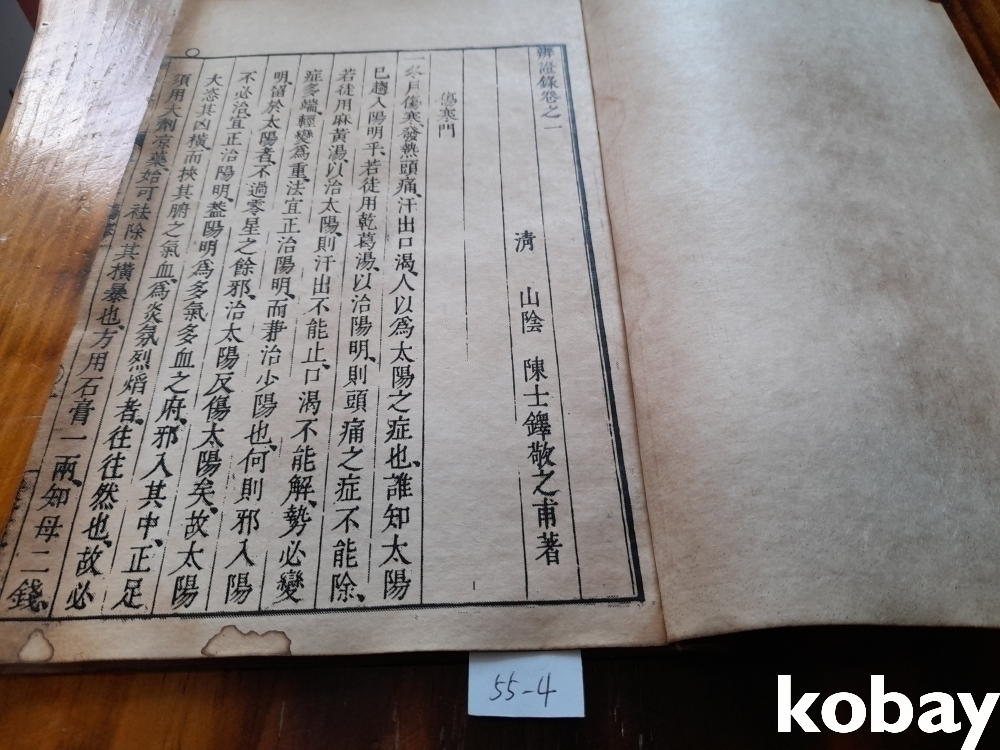 辨證錄卷之一
清 山陰 陳士鐸敬之甫著
傷寒門
一冬月傷寒、發熱頭痛、汗出口渴、人以為太陽之症也、誰知太陽
已趨入陽明乎、若徒用乾葛湯、以治陽明、則頭痛之症不能除、
若徒用麻黃湯、以治太陽、則汗出不能止、口渴不能解、勢必變
症多端、輕變為重、法宜正治陽明、而兼治少陽也、何則邪入陽
明、留於太陽者、不過零星之餘邪、治太陽反傷太陽矣、故太陽
不必治、宜正治陽明、蓋陽明為多氣多血之府、邪入其中、正足
大恣其凶橫、而挾其腑之氣血、為炎氛烈熖者、往往然也、故必
須用大劑凉藥、始可袪除其橫暴也、方用石膏一兩、知母二錢、
55-4
kobay